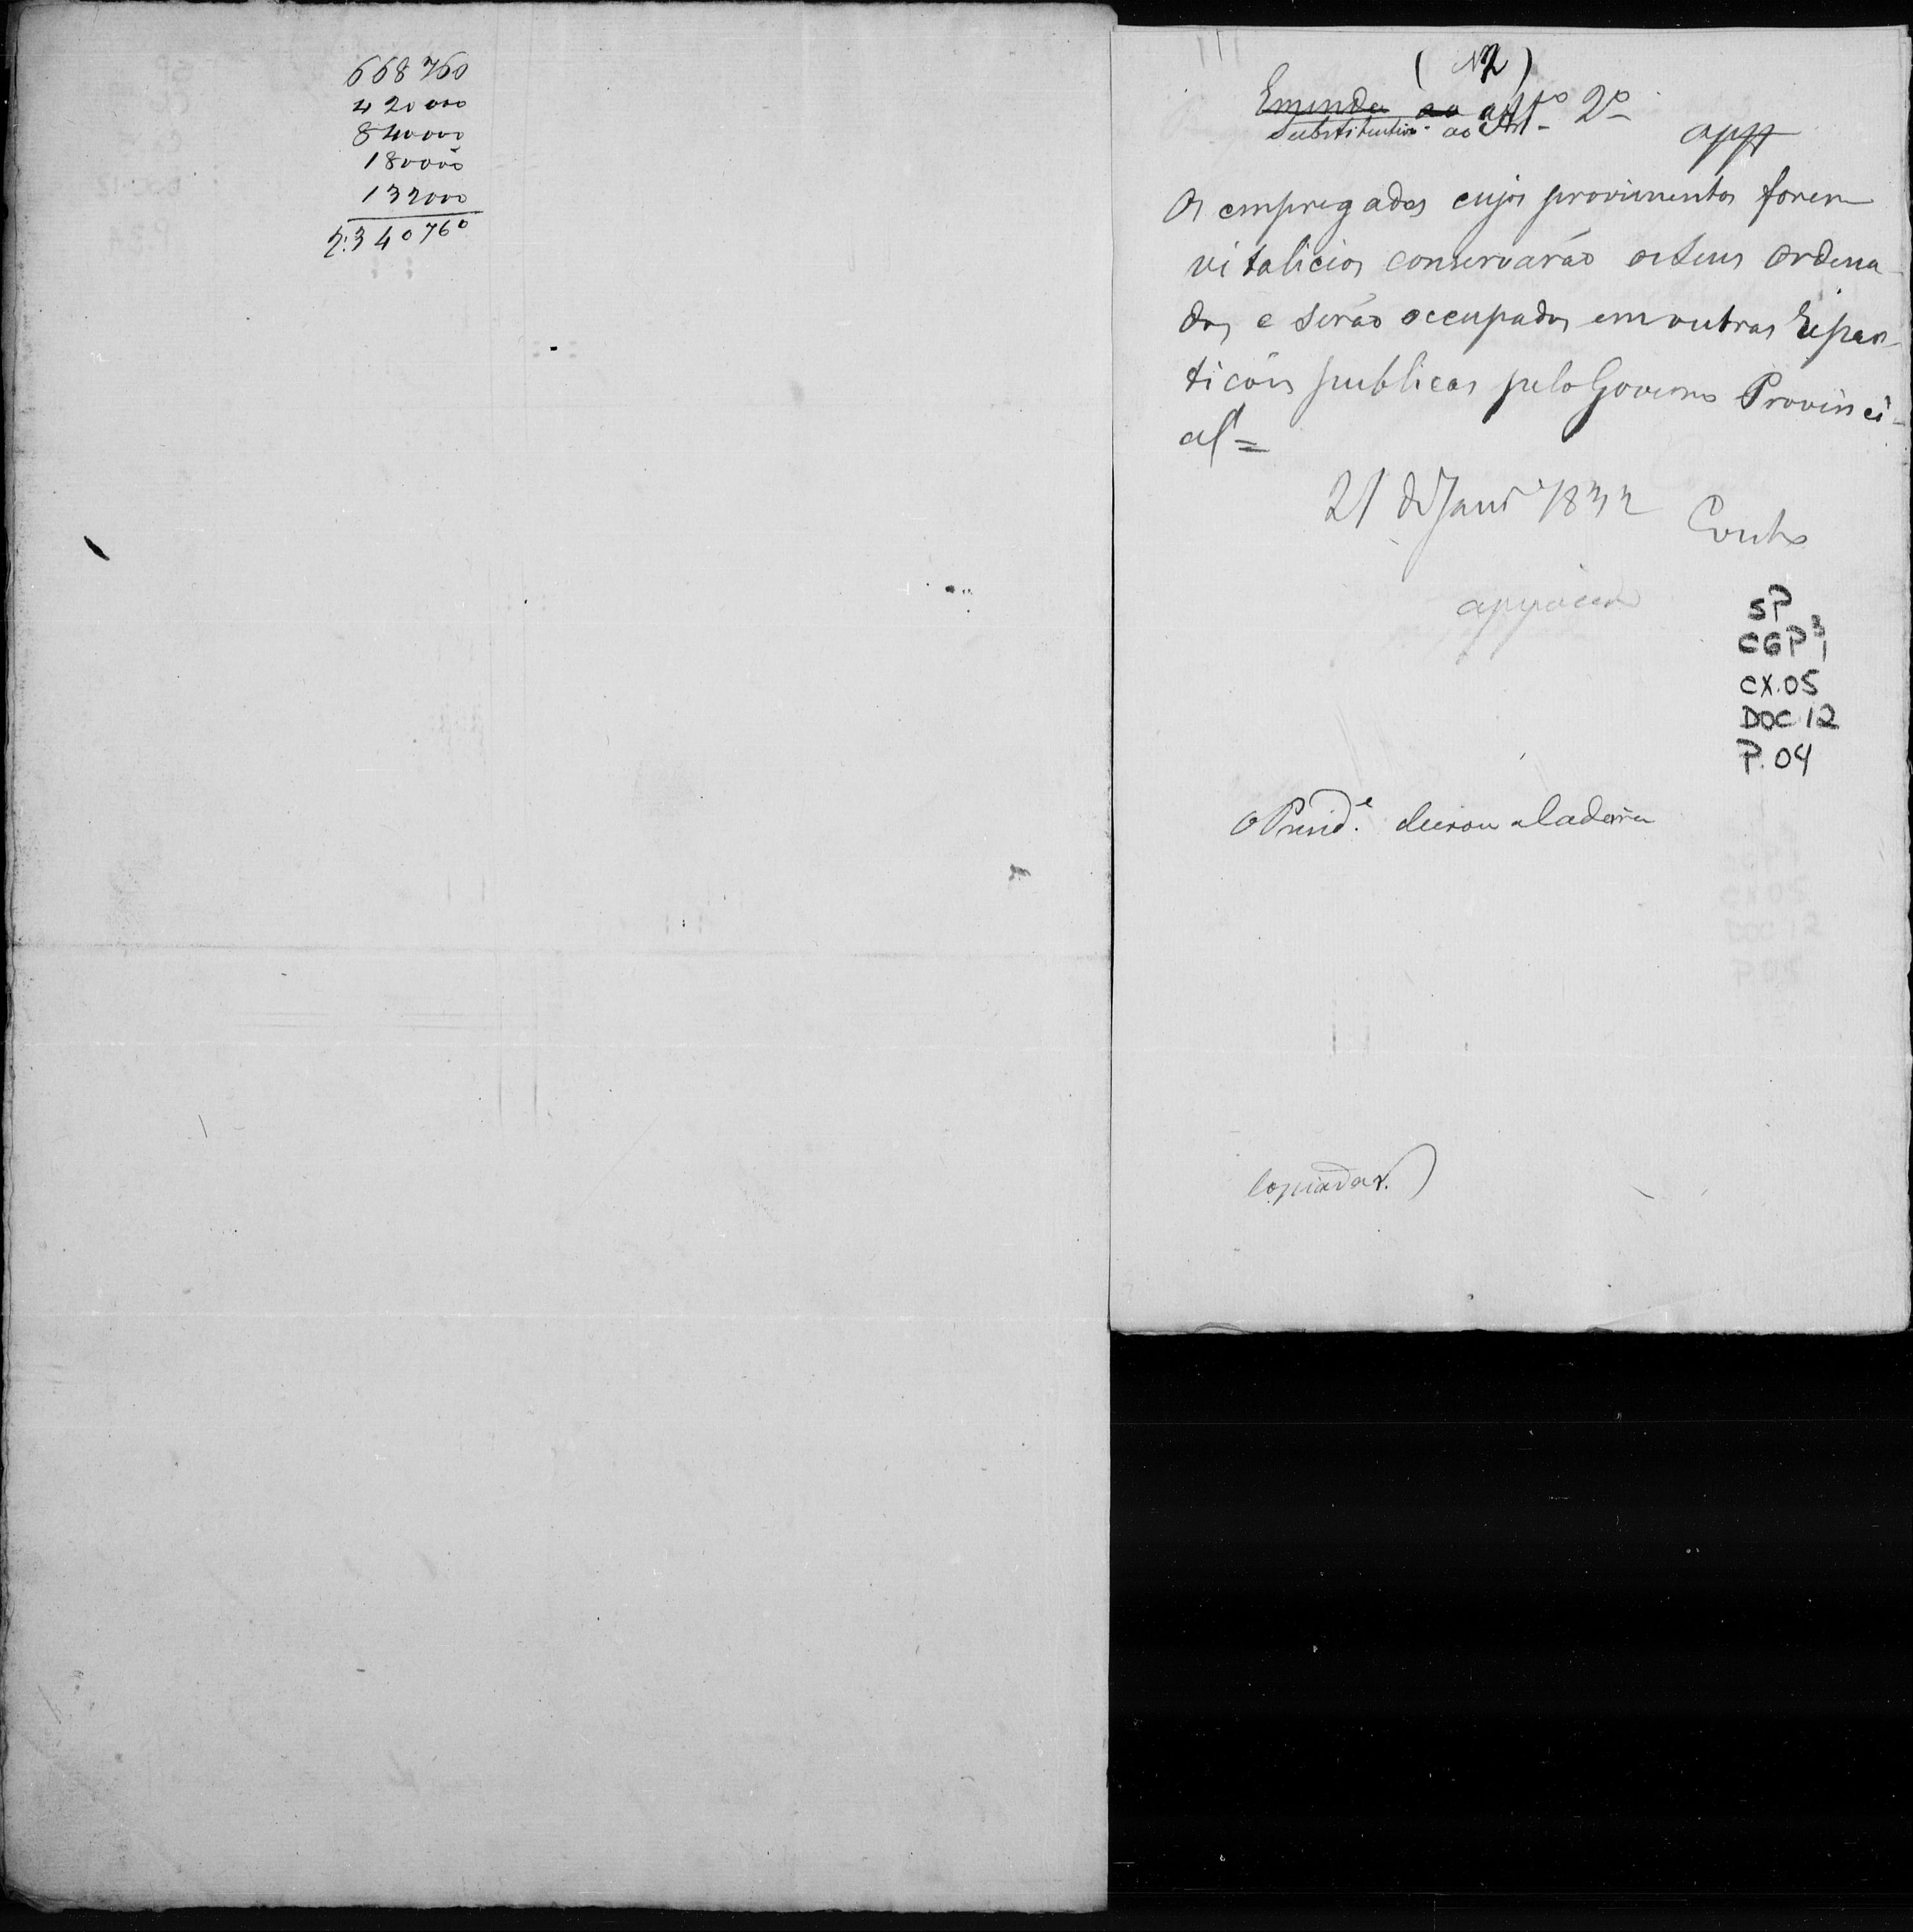 668760
420000
840000
180000
132000
2:340760
(N2)
Emenda ao
Substitutivo ao Art.º 2º
app
Os empregados cujos provimentos forem
vitalicios conservarão os seus ordena-
dos, e serão occupados em outras Repar-
ticões publicas pelo Governo Provinci-
al =
21 de Janrº 1832
Couto
apoiada
SP
CGP3
1
CX.05
DOC 12
P.04
O Presid.e deixou a Cadeira
Copiadas.